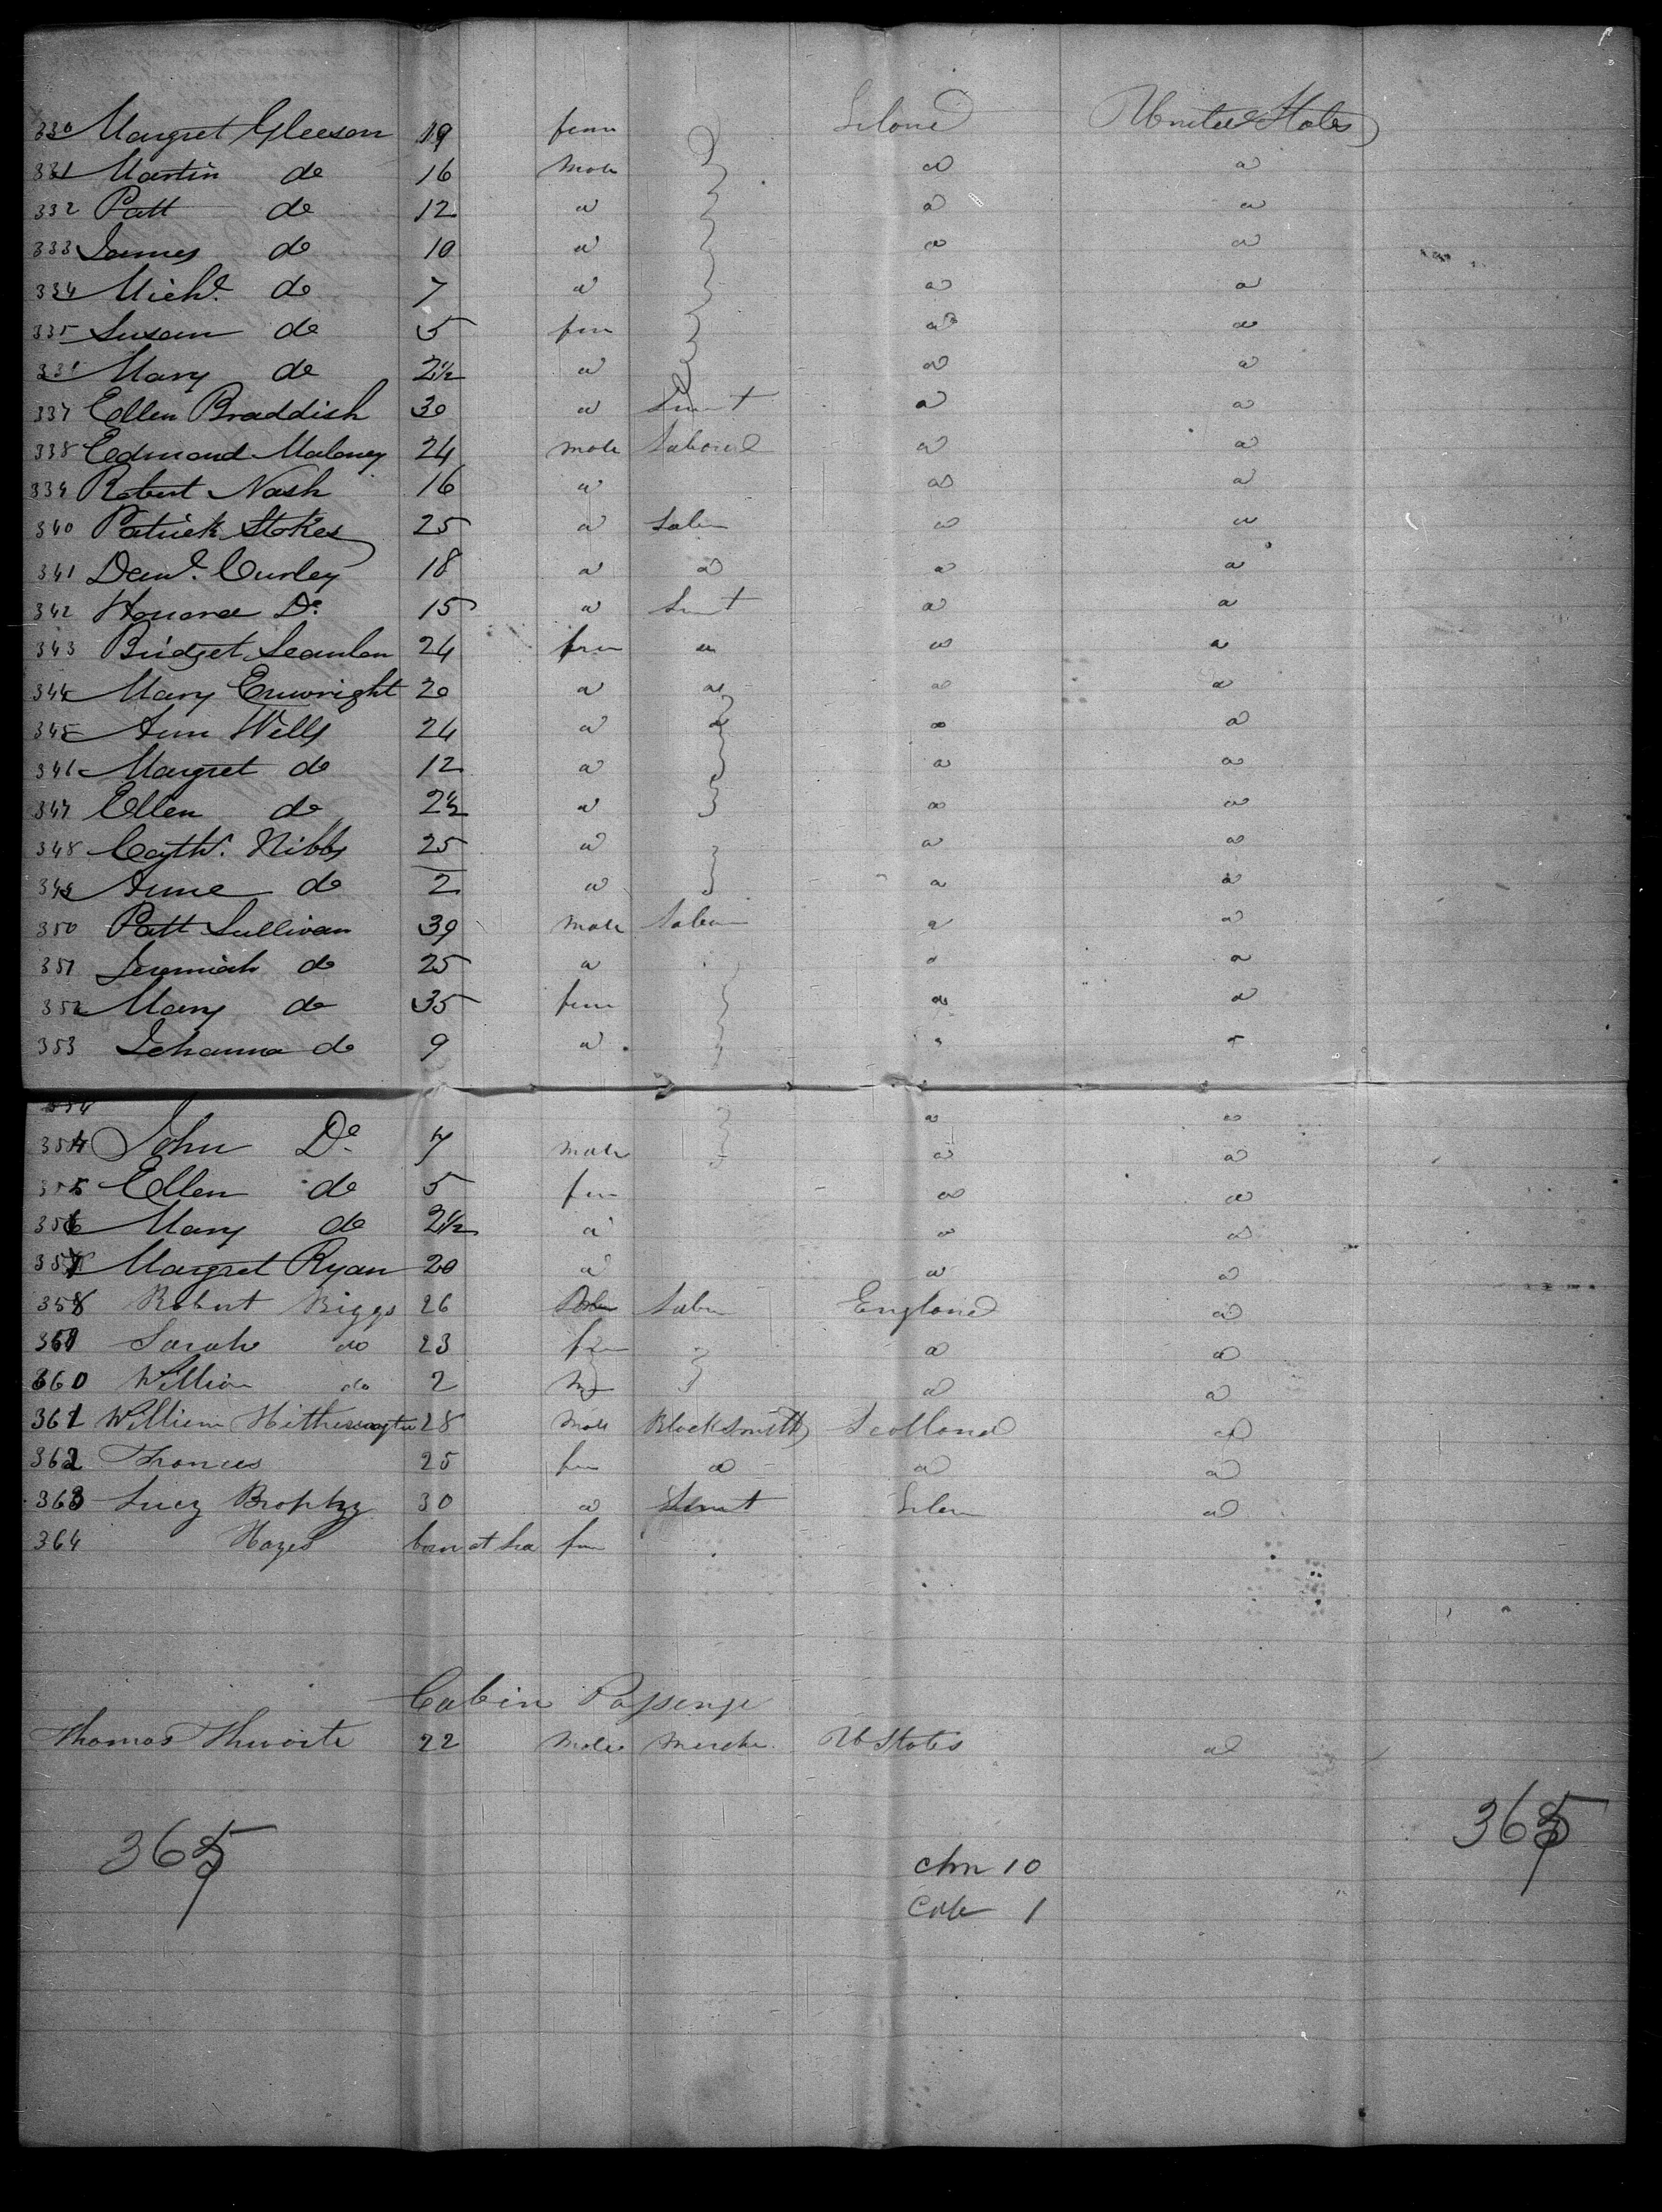 330 Margret Gleeson 19 fem Irland United States
331 Martin do 16 male do do
332 Patt do 12 do do do
333 James do 10 do do do
334 Michl. do 7 do do do
335 Susan do 5 fem do do
336 Mary do 2½ do do do
337 Ellen Braddish 30 do Servt do do
338 Edmond Maloney 24 male Laborer do do
339 Robert Nash 16 do do do
340 Patrick Stokes 25 do Labr do do
341 Danl. Curley 18 do do do do
342 Honora Do. 15 do Servt do do
343 Bridget Scanlan 24 fem do do do
344 Mary Enwright 20 do do do do
345 Ann Wells 24 do do do do
346 Margret do 12 do do do
347 Ellen do 2½ do do do
348 Cath. Nibbs 25 do do do
349 Anne do 2 do do do
350 Patt Sullivan 39 male Labr do do
351 Jeremiah do 25 do do do
352 Mary do 35 fem do do
353 Johanna do 9 do do do
354 do do
354 John Do. 7 male do do
355 Ellen do 5 fem do do
356 Mary do 2½ do do do
357 Margret Ryan 20 do do do
358 Robert Biggs 26 Labr England do
Sarah do 23 fem do do
360 William do 2 m do do
361 William 28 male Blacksmith Scotland do
362 Frances 25 fem do do do
363 Lucy Brophy 30 do Servt Irlan do
364 Hayes born at Sea fem
Cabin Passenge
Thomas Thwaite 22 male Merchr. U States do
365 365
chn 10
Cab 1